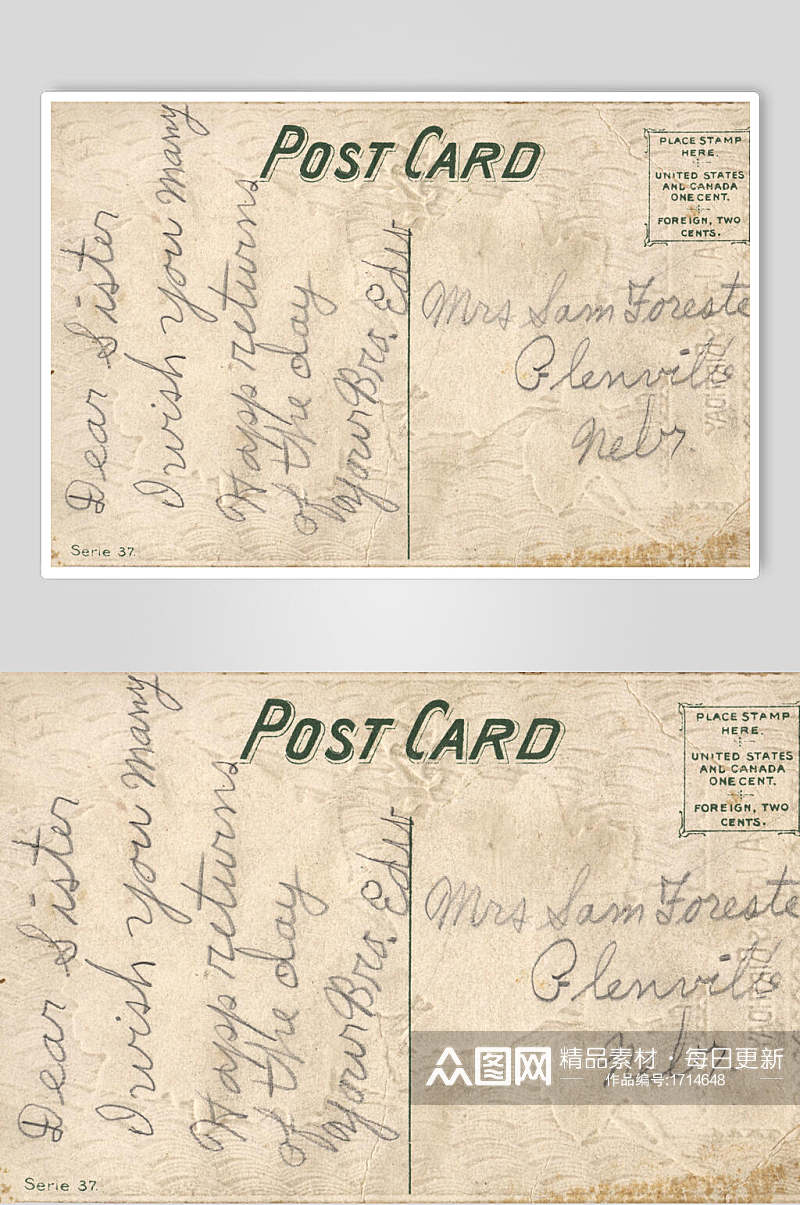 POST CARD
PLACE STAMP
HERE.
UNITED STATES
AND CANADA
ONE CENT.
FOREIGN, TWO
CENTS.
Dear Sister
I wish you many
Happ returns
of the day
your Bro. Edw
Mrs Sam Foreste
Glenvile
Nebr.
Serie 37.
POST CARD
PLACE STAMP
HERE.
UNITED STATES
AND CANADA
ONE CENT.
FOREIGN, TWO
CENTS.
Dear Sister
I wish you many
Happ returns
of the day
your Bro. Edw
Mrs Sam Foreste
Glenvile
Nebr.
Serie 37.
众图网
精品素材·每日更新
作品编号:1714648